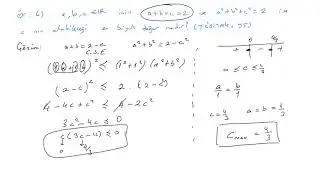 Ör: 6) a, b, c ∈ℝ için a+b+c=2 ve a²+b²+c²=2 ise
c nin alabileceği en büyük değer nedir?
Çözüm: a+b=2-c a²+b²=2-c²
C.S.E
(a+b)² ≤ (1²+1²)(a²+b²)
(2-c)² ≤ 2.(2-c²)
4-4c+c² ≤ 4-2c²
3c²-4c ≤ 0
c(3c-4) ≤ 0
0 4/3
0 4/3
+ - +
0 ≤ c ≤ 4/3
a/1 = b/1
c=4/3 a=b=1/3
Cmax = 4/3